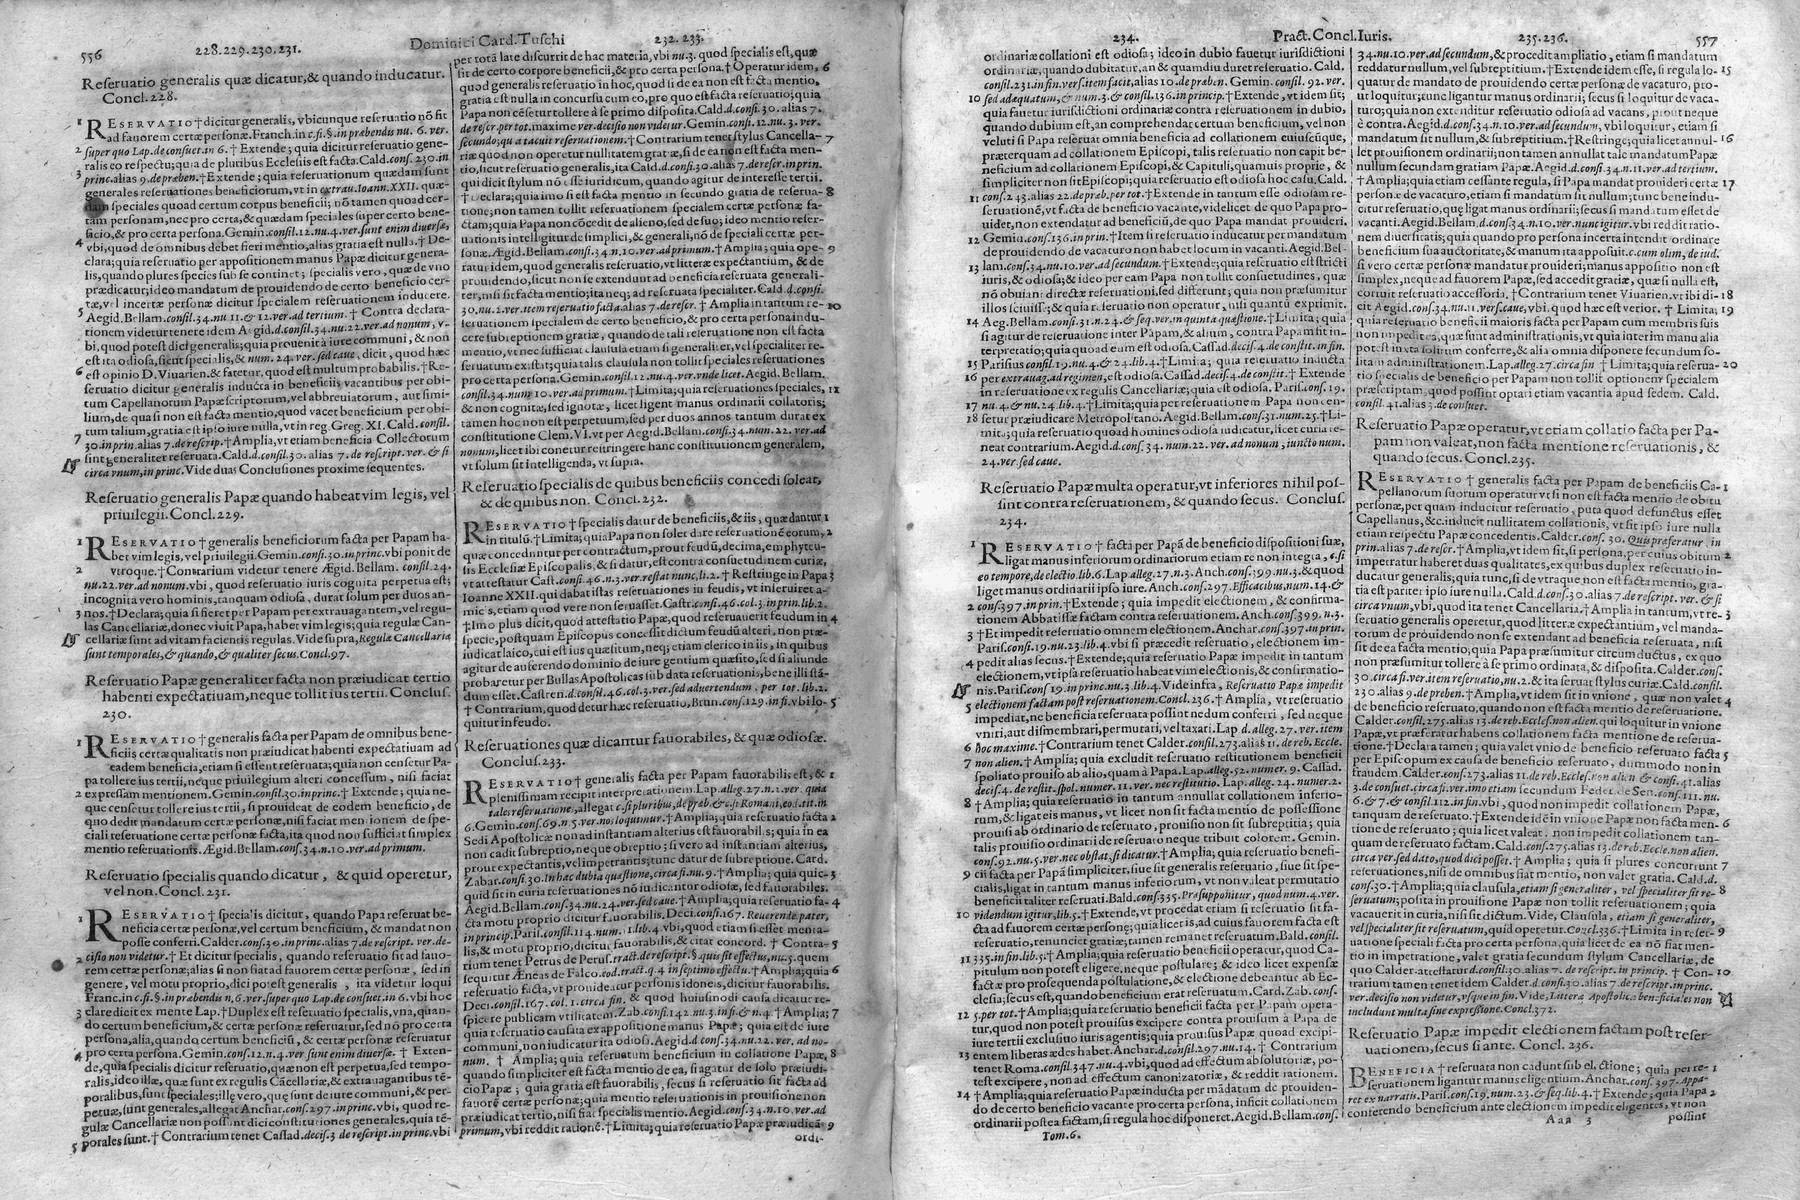 556 228.229.230.231. Dominici Card.Tuschi 232.233.
Reseruatio generalis quæ dicatur,& quando inducatur.
Concl.228.
RESERVATIO†dicitur generalis, vbicunque reseruatio nō sit
ad fauorem certæ personæ. Franch.in c.fi.§.in prebendis nu. 6. ver.
super quo Lap.de consuet.in 6.† Extende; quia dicitur reseruatio gene-
ralis eo respectu;quia de pluribus Ecclesiis est facta. Cald.cons.230.in
princ.alias 9.de præben.†Extende; quia reseruationum quædam sunt
generales reseruationes beneficiorum, vt in extrau.Ioann.XXII. quæ-
dam speciales quoad certum corpus beneficii; nō tamen quoad cer-
tam personam, nec pro certa,& quædam speciales super certo bene-
ficio,& pro certa persona. Gemin.consil.12.nu.4.ver.sunt enim diuersæ,
vbi,quod de omnibus debet fieri mentio,alias gratia est nulla.† De-
clara;quia reseruatio per appositionem manus Papæ dicitur genera-
lis,quando plures species sub se continet; specialis vero, quæ de vno
prædicatur;ideo mandatum de prouidendo de certo beneficio cer-
tæ,vel incertæ personæ dicitur specialem reseruationem inducere.
Aegid.Bellam.consil.34.nu 11.& 12.ver.ad tertium. † Contra declara-
tionem videtur tenere idem Aegid.d.consil.34.nu.22.ver.ad nonum, v-
bi,quod potest dici generalis;quia prouenit à iure communi,& non
est ita odiosa,sicut specialis,& num.24.ver.sed caue, dicit, quod hæc
est opinio D.Viuarien.& fatetur,quod est multum probabilis.†Re-
seruatio dicitur generalis inducta in beneficiis vacantibus per obi-
tum Capellanorum Papæ scriptorum, vel abbreuiatorum, aut simi-
lium,de qua si non est facta mentio,quod vacet beneficium per obi-
tum talium,gratia est ipso iure nulla,vt in reg.Greg. XI. Cald.consil.
30.in prin.alias 7.de rescrip.†Amplia,vt etiam beneficia Collectorum
sint generaliter reseruata.Cald.d.consil.30. alias 7. de rescript.ver.& si
circa vnum,in princ.Vide duas Conclusiones proxime sequentes.
Reseruatio generalis Papæ quando habeat vim legis, vel
priuilegii. Concl.229.
RESERVATIO†generalis beneficiorum facta per Papam ha-
bet vim legis, vel priuilegii.Gemin.consi.30.in princ.vbi ponit de
vtroque.†Contrarium videtur tenere Ægid.Bellam. consil.24.
nu.22.ver.ad nonum.vbi, quod reseruatio iuris cognita perpetua est;
incognita vero hominis, tanquam odiosa, durat solum per duos an-
nos.†Declara;quia si fieret per Papam per extrauagantem,vel regu-
las Cancellariæ,donec viuit Papa, habet vim legis;quia regulæ Can-
cellariæ sunt ad vitam facientis regulas. Vide supra,Regulæ Cancellariæ
sunt temporales,& quando,& qualiter secus.Concl.97.
Reseruatio Papæ generaliter facta non præiudicat tertio
habenti expectatiuam,neque tollit ius tertii. Conclus.
230.
RESERVATIO†generalis facta per Papam de omnibus bene-
ficiis certæ qualitatis non præiudicat habenti expectatiuam ad
eadem beneficia,etiam si essent reseruata;quia non censetur Pa-
pa tollere ius tertii,neque priuilegium alteri concessum, nisi faciat
expressam mentionem. Gemin.consil.30.in princ.† Extende; quia ne-
que censetur tollere ius tertii,si prouideat de eodem beneficio, de
quo dedit mandatum certæ personæ,nisi faciat mentionem de spe-
ciali reseruatione certæ personæ facta,ita quod non sufficiat simplex
mentio reseruationis.Ægid.Bellam.cons.34.n.10.ver.ad primum.
Reseruatio specialis quando dicatur, & quid operetur,
vel non. Concl.231.
RESERVATIO†specialis dicitur, quando Papa reseruat be-
neficia certæ personæ,vel certum beneficium, & mandat non
posse conferri.Calder.cons.30.in princ.alias 7.de rescript. ver.de-
cisio non videtur.† Et dicitur specialis, quando sit ad fauo-
rem certæ personæ;alias si non fiat ad fauorem certæ personæ, sed in
genere, vel motu proprio,dici potest generalis, ita videtur loqui
Franc.in c.fi.§.in præbendis n.6.ver.super quo Lap.de consuet.in 6.vbi hoc
claredicit ex mente Lap.†Duplex est reseruatio specialis,vna,quan-
do certum beneficium,& certæ personæ reseruatur,sed nō pro certa
persona,alia,quando certum beneficiū, & certæ personæ reseruatur
pro certa persona.Gemin.cons.12.n.4.ver.sunt enim diuersæ. † Exten-
de,quia specialis dicitur reseruatio, quæ non est perpetua,sed tempo-
ralis,ideo illæ, quæ sunt ex regulis Cācellariæ,& extrauagantibus tē-
poralibus,sunt speciales;illę vero, quę sunt de iure communi, & per-
petuæ,sunt generales,allegat Anchar.cons.297.in princ.vbi, quod re-
gulæ Cancellariæ non possunt dici constitutiones generales,quia tē-
porales sunt.† Contrarium tenet Cassad.decis.3 de rescript.in princ.vbi
per tota late discurrit de hac materia, vbi nu.3. quod specialis est,quæ
sit de certo corpore beneficii,& pro certa persona.†Operatur idem,
quod generalis reseruatio in hoc,quod li de ea non est facta mentio,
gratia est nulla in concursu cum eo,pro quo est facta reseruatio;quia
Papa non cēsetur tollere à se primo disposita.Cald.d.consi.30. alias 7.
de rescr.per tot.maxime ver.decisio non videtur.Gemin.consi.12.nu.3. ver.
secundo;qu a tacuit reseruationem.†Contrarium tenet stylus Cancella-
riæ quod non operetur nullitatem gratiæ,si de ea non est facta men-
tio,sicut reseruatio generalis,ita Cald.d.consil.30.alias 7.de rescr.in prin.
qui dicit stylum nō esse iuridicum, quando agitur de interesse tertii.
†Declara;quia imo si est facta mentio in secundo gratia de reserua-
tione;non tamen tollit reseruationem specialem certæ personæ fa-
ctam;quia Papa non cōcedit de alieno,sed de suo; ideo mentio reser-
uationis intelligitur de simplici,& generali,nō de speciali certæ per-
sonæ.Aegid.Bellam.consil.34.n.10.ver.ad primum.†Amplia;quia ope-
ratur idem,quod generalis reseruatio,vt litteræ expectantium,& de
prouidendo,sicut non se extendunt ad beneficia reseruata generali-
ter,nisi sit facta mentio;ita neq; ad reseruata specialiter.Cald.d.consi.
30.nu.2.ver.item reseruatio facta.alias 7.de rescr. † Amplia in tantum re-
seruationem specialem de certo beneficio,& pro certa persona indu-
cere subreptionem gratiæ, quando de tali reseruatione non est facta
mentio,vt nec sufficiat clausula etiam si generaliter,vel specialiter re-
seruatum existat;quia talis clausula non tollit speciales reseruationes
pro certa persona.Gemin.consil.12.nu.4.ver.vnde licet.Aegid.Bellam.
consil.34.num.10.ver.ad primum.†Limita;quia reseruationes speciales,
& non cognitæ,sed ignotæ, licet ligent manus ordinarii collatoris;
tamen hoc non est perpetuum,sed per duos annos tantum durat ex
constitutione Clem.VI.vt per Aegid.Bellam.consil.34.num.22.ver.ad
nonum,licet ibi conetur restringere hanc constitutionem generalem,
vt solum sit intelligenda, vt supra.
Reseruatio specialis de quibus beneficiis concedi soleat,
& de quibus non. Concl.232.
RESERVATIO†specialis datur de beneficiis,& iis, quæ dantur
in titulū.†Limita;quia Papa non solet dare reseruationē eorum,
quæ conceduntur per contractum,prout feudū,decima,emphyteu-
sis Ecclesiæ Episcopi,& si datur,est contra consuetudinem curiæ,
vt attestatur Cast.consi.46.n.3.ver.restat nunc,li.2.† Restringe in Papa
Ioanne XXII.qui dabat istas reseruationes in feudis,vt inseruiret a-
micis,etiam quod vere non seruasset.Castr.consi.46.col.3.in prin.lib.2.
†Imo plus dicit,quod attestatio Papæ,quod reseruauerit feudum in
specie,postquam Episcopus concessit dictum feudū alteri, non præ-
iudicat laico,cui est ius quæsitum,neq; etiam clerico in iis, in quibus
agitur de auferendo dominio de iure gentium quæsito,sed si aliunde
probaretur per Bullas Apostolicas sub data reseruationis,bene illi stā-
dum esset.Castren.d.consil.46.col.3.ver.sed aduertendum. per tot.lib.2.
† Contrarium,quod detur hæc reseruatio,Brun.cons.129.in fi.vbi lo-
quitur in feudo.
Reseruationes quæ dicantur fauorabiles, & quæ odiosæ.
Conclus.233.
RESERVATIO†generalis facta per Papam fauorabilis est,&
plenissimam recipit interpretationem.Lap.alleg.27.n.2.ver. quia
tales reseruatione,allegat c.si pluribus,de præb.& c.si Romani,eod.tit.in
6.Gemin.cons.69.n.5.ver.nos loquimur.†Amplia;quia reseruatio facta
Sedi Apostolicæ non ad instantiam alterius est fauorabilis;quia in ea
non cadit subreptio,neque obreptio; si vero ad instantiam alterius,
prout expectantis,vel impetrantis;tunc datur de subreptione. Card.
Zabar.consi.30.In hac dubia quæstione,circa fi.nu.9.†Amplia;quia quic-
quid sit in curia reseruationes nō iudicantur odiosæ, sed fauorabiles.
Aegid.Bellam.consil.34.nu.24.ver.sed caue.†Amplia;quia reseruatio fa-
cta motu proprio dicitur fauorabilis,Deci.consi.167. Reuerende pater,
in princip.Paris.cons.114.num.1.lib.4.vbi,quod etiam si esset menta-
lis,& motu proprio,dicitur fauorabilis,& citat concord. † Contra-
rium tenet Petrus de Perus.tract.de rescript.§.quis sit effectus,nu.5.quem
sequitur Æneas de Falco.eod.tract.q.4 in septimo effectu.†Amplia;quia
reseruatio facta,vt prouideatur personis idoneis,dicitur fauorabilis.
Deci.consil.167. col. 1. circa fin. & quod huiusmodi causa dicatur re-
spicere publicam vtilitatem.Zab.consi.142.nu.3.in fi.& n.4.†Amplia;
quia reseruatio causata ex appositione manus Papæ; quia est de iure
communi,non iudicatur ita odiosa.Aegid.d.consi.34.nu.22.ver. ad no-
num. † Amplia; quia reseruatum beneficium in collatione Papæ,
quando simpliciter est facta mentio de ea,si agatur de solo præiudi-
cio Papæ; quia gratia est fauorabilis, secus si reseruatio sit facta ad
fauorē certæ personæ;quia mentio reseruationis in prouisione non
præiudicat tertio,nisi fiat specialis mentio.Aegid.consil.34.n.10.ver.ad
primum,vbi reddit rationē.†Limita;quia reseruatio Papæ præiudicās
ordi-
234. Pract.Concl.Iuris. 235.236. 557
ordinariæ collationi est odiosa; ideo in dubio fauetur iurisdictioni
ordinariæ,quando dubitatur,an & quamdiu duret reseruatio. Cald.
consil.231.in fin.vers.item facit,alias 10.de præben.Gemin.consil. 92.ver.
sed adæquatum,& num.3.& consil.136.in princip.†Extende, vt idem sit;
quia fauetur iurisdictioni ordinariæ contra reseruationem in dubio,
quando dubium est,an comprehendat certum beneficium, vel non
veluti si Papa reseruat omnia beneficia ad collationem cuiuscunque,
præterquam ad collationem Episcopi, talis reseruatio non capit be-
neficium ad collationem Episcopi,& Capituli, quamuis proprie, &
simpliciter non sit Episcopi;quia reseruatio est odiosa hoc casu.Cald.
cons.243.alias 22.de præb.per tot.†Extende in tantum esse odiosam re-
seruationē,vt facta de beneficio vacante,videlicet de quo Papa pro-
uider,non extendatur ad beneficiū,de quo Papa mandat prouideri.
Gemin.cons.136.in prin.†Item si reseruatio inducatur per mandatum
de prouidendo de vacaturo non habet locum in vacanti.Aegid.Bel-
lam.cons.34.nu.10.ver.ad secundum.†Extende;quia reseruatio est stricti
iuris,& odiosa;& ideo per eam Papa non tollit consuetudines, quæ
nō obuiant directæ reseruationi,sed differunt; quia non præsumitur
illos sciuisse;& quia reseruatio non operatur, nisi quantū exprimit.
Aeg.Bellam.consi.31.n.24.& seq.ver.in quinta quæstione.†Limita; quia
si agitur de reseruatione inter Papam,& alium, contra Papam fit in-
terpretatio;quia quoad eum est odiosa.Cassad.decis.4.de constit.in fin.
Parisius consil.19.nu.4.& 24.lib.4.†Limita; quia reseruatio inducta
per extrauag.ad regimen,est odiosa. Cassad.decis.4.de constit. † Extende
in reseruatione ex regulis Cancellariæ;quia est odiosa.Paris.cons.19.
nu.4.& nu.24.lib.4.†Limita;quia per reseruationem Papa non cen-
setur præiudicare Metropolitano. Aegid.Bellam.cons.31.num.25.†Li-
mita;quia reseruatio quoad homines odiosa iudicatur, licet curia re-
neat contrarium.Aegid.d.cons.34.num.22.ver.ad nonum,iuncto num.
24.ver.sed caue.
Reseruatio Papæ multa operatur,vt inferiores nihil pos-
sint contra reseruationem,& quando secus. Conclus.
234.
RESERVATIO† facta per Papā de beneficio dispositioni suæ,
ligat manus inferiorum ordinariorum etiam re non integra, c.si
eo tempore,de electio.lib.6.Lap.alleg.27.n.3.Anch.cons.399.nu.3.& quod
liget manus ordinarii ipso iure. Anch.cons.297.Efficacibus,num.14.&
cons.397.in prin.†Extende; quia impedit electionem, & confirma-
tionem Abbatissæ factam contra reseruationem. Anch.cons.399. n.3.
†Et impedit reseruatio omnem electionem.Anchar.cons.397.in princ.
Paris.cons.19.nu.23.lib.4.vbi si præcedit reseruatio, electionem im-
pedit alias secus.†Extende;quia reseruatio Papæ impedit in tantum
electionem,vt ipsa reseruatio habeat vim electionis,& confirmatio-
nis.Paris.cons 19.in princ.nu.3.lib.4. Vide infra, Reseruatio Papæ impedit
electionem factam post reseruationem.Concl.236.† Amplia, vt reseruatio
impediat,ne beneficia reseruata possint nedum conferri, sed neque
vniri,aut dismembrari,permutari,vel taxari.Lap.d.alleg.27.n.3. in ver.
hoc maxime.†Contrarium tenet Calder.consil.273.alias 11.de reb.Eccle.
non alien.†Amplia; quia excludit restitutionem beneficii
spoliato prouiso ab alio,quam à Papa.Lap.alleg.52. numer. 9. Cassad.
decis.4. de restit.spol.numer.11.ver.nec restitutio. Lap. alleg.24.numer.2.
†Amplia; quia reseruatio in tantum annullat collationem inferio-
rum,& ligat eis manus, vt licet non sit facta mentio de possessione
prouisi ab ordinario de reseruato, prouisio non sit subreptitia; quia
talis prouisio ordinarii de reseruato neque tribuit colorem. Gemin.
cons.92.nu.5.ver.nec obstat,si dicatur.†Amplia; quia reseruatio benefi-
cii facta per Papā simpliciter,siue sit generalis reseruatio, siue sit spe-
cialis,ligat in tantum manus inferiorum,vt non valeat permutatio
beneficii taliter reseruati.Bald.cons.335.Præsupponitur, quod num.4.ver.
videndum igitur,lib.5.†Extende,vt procedat etiam si reseruatio sit fa-
cta ad fauorem certæ personæ; quia licet is,ad cuius fauorem facta est
reseruatio,renunciet gratiæ; tamen remanet reseruatum.Bald. consil.
335.in fin.lib.5.†Amplia;quia reseruatio operatur, quod Ca-
pitulum non potest eligere, neque postulare; & ideo licet expensæ
factæ pro sequenda postulatione,& electione debeantur ab Ec-
clesia;secus est,quando beneficium erat reseruatum.Card.Zab.cons.
5.per tot.†Amplia;quia reseruatio beneficii facta per Papam opera-
tur,quod non potest prouisus excipere contra prouisum à Papa de
iure tertii exclusiuo iuris agentis;quia prouisus Papæ quoad excipi-
entem liberas ædes habet.Anchar.d.consil.297.nu.14.† Contrarium
tenet Roma.cons.347.nu.4.vbi,quod ad effectum absolutoriæ, po-
test excipere, non ad effectum canonizatoriæ, & reddit rationem.
†Amplia;quia reseruatio Papæ inducta per mādatum de prouiden-
do de certo beneficio vacante pro certa persona, inficit collationem
ordinarii postea factam,si regula hoc disponeret. Aegid.Bellam.cons.
Tom.6.
34.nu.10.ver.ad secundum,& procedit ampliatio , etiam si mandatum
reddatur nullum, vel subreptitium.†Extende idem esse, si regula lo-
quatur de mandato de prouidendo certæ personæ de vacaturo, pro-
ut loquitur;tunc ligantur manus ordinarii; secus si loquitur de vaca-
turo;quia non extenditur reseruatio odiosa ad vacans, prout neque
è contra.Aegid.d.cons.34.n.10.ver.ad secundum, vbi loquitur, etiam si
mandatum sit nullum,& subreptitium.†Restringe;quia licet annul-
let prouisionem ordinarii;non tamen annullat tale mandatum Papæ
nullum secundam gratiam Papæ.Aegid.d.cons.34.n.11.ver.ad tertium.
†Amplia;quia etiam cessante regula, si Papa mandat prouideri certæ
personæ de vacaturo,etiam si mandatum sit nullum;tunc bene indu-
citur reseruatio,quę ligat manus ordinarii;secus si mandatum esset de
vacanti.Aegid.Bellam.d.cons.34.n.10.ver.nunc igitur.vbi reddit ratio-
nem diuersitatis;quia quando pro persona incerta intendit ordinare
beneficium sua auctoritate,& manum ita apposuit.c.cum olim,de iud.
si vero certæ personæ mandatur prouideri;manus appositio non est
simplex,neque ad fauorem Papæ,sed accedit gratiæ, quæ si nulla est,
corruit reseruatio accessoria. †Contrarium tenet Viuarien.vt ibi di-
cit Aegid.d.cons.34.nu.11.vers.caue,vbi,quod hæc est verior. † Limita;
quia reseruatio beneficii maioris facta per Papam cum membris suis
non impedit ea,quæ sunt administrationis,vt quia interim manualia
potest iuxta solitum conferre,& alia omnia disponere secundum so-
lita in administratione.Lap.alleg.27.circa fin †Limita;quia reserua-
tio specialis de beneficio per Papam non tollit optionem specialem
præscriptam,quod possint optari etiam vacantia apud sedem. Cald.
consil.41.alias 3.de consuet.
Reseruatio Papæ operatur,vt etiam collatio facta per Pa-
pam non valeat,non facta mentione reseruationis , &
quando secus. Concl.235.
RESERVATIO† generalis facta per Papam de beneficiis Ca-
pellanorum suorum operatur,vt si non est facta mentio de obitu
personæ,per quam inducitur reseruatio , puta quod defunctus esset
Capellanus,&c.inducit nullitatem collationis,vt sit ipso iure nulla
etiam respectu Papæ concedentis.Calder.cons. 30. Quis præferatur , in
prin.alias 7.de rescr.†Amplia,vt idem sit,si persona,per cuius obitum
imperratur haberet duas qualitates,ex quibus duplex reseruatio in-
ducatur generalis;quia tunc,si de vtraque non est facta mentio, gra-
tia est pariter ipso iure nulla.Cald.d.cons.30.alias 7.de rescr. ver. & si
circa vnum,vbi,quod ita tenet Cancellaria.†Amplia in tantum,vt re-
seruatio generalis operetur,quod litteræ expectantium, vel manda-
torum de prouidendo non se extendant ad beneficia reseruata , nisi
sit de ea facta mentio;quia Papa præsumitur circumductus, ex quo
non præsumitur tollere à se primo ordinata,& disposita.Calder.cons.
30.circa fi.ver.item reseruatio,nu.2.& ita seruat stylus curiæ.Cald.consil.
230.alias 9.de preben.†Amplia,vt idem sit in vnione , quæ non valet
de beneficio reseruato,quando non est facta mentio de reseruatione.
Calder.consil.275.alias 13.de reb.Eccles.non alien.qui loquitur in vnione
Papæ,vt præferatur habens collationem facta mentione de reserua-
tione.†Declara tamen; quia valet vnio de beneficio reseruato facta
per Episcopum ex causa de beneficio reseruato , dummodo non in
fraudem.Calder.cons.273.alias 11.de reb.Eccles.non alien & cons.41.alias
3.de consuet.circa fi.ver.imo etiam secundum Feder.de Sen.cons.111.nu.
6.& 7.& consil.112.in fin.vbi, quod non impedit collationem Papæ,
tanquam de reseruato.†Extende idē in vnione Papæ non facta men-
tione de reseruato; quia licet valeat, non impedit collationem tan-
quam de reseruato factam. Cald.cons.275.alias 13.de reb.Eccle.non alien.
circa ver.sed dato,quod dici posset.† Amplia; quia si plures concurrunt
reseruationes,nisi de omnibus fiat mentio, non valet gratia. Cald.d.
cons.30.†Amplia;quia clausula,etiam si generaliter, vel specialiter sit re-
seruatum;posita in prouisione Papæ non tollit reseruationem ; quia
vacauerit in curia,nisi sit dictum. Vide, Clausula , etiam si generaliter,
vel specialiter sit reseruatum, quid operetur.Concl.336.†Limita in reser-
uatione speciali facta pro certa persona,quia licet de ea nō fiat men-
tio in impetratione, valet gratia secundum stylum Cancellariæ, de
quo Calder.attestatur d.consil.30.alias 7.de rescript. in princip. † Con-
trarium tamen tenet idem Calder.d.consil.30.alias 7.de rescript.in princ.
ver.decisio non videtur,vsque in fin.Vide,Littera Apostolica beneficiales non
includunt multa sine expressione.Concl.372.
Reseruatio Papæ impedit electionem factam post reser-
uationem,secus si ante. Concl. 236.
BENEFICIA†reseruata non cadunt sub electione; quia per re-
seruationem ligantur manus eligentium. Anchar.cons.397. Appa-
ret ex narratis.Paris.cons.19.num.23.& seq.lib.4.†Extende; quia Papa
conferendo beneficium ante electionem impedit eligentes,vt non
Aaa 3 possint